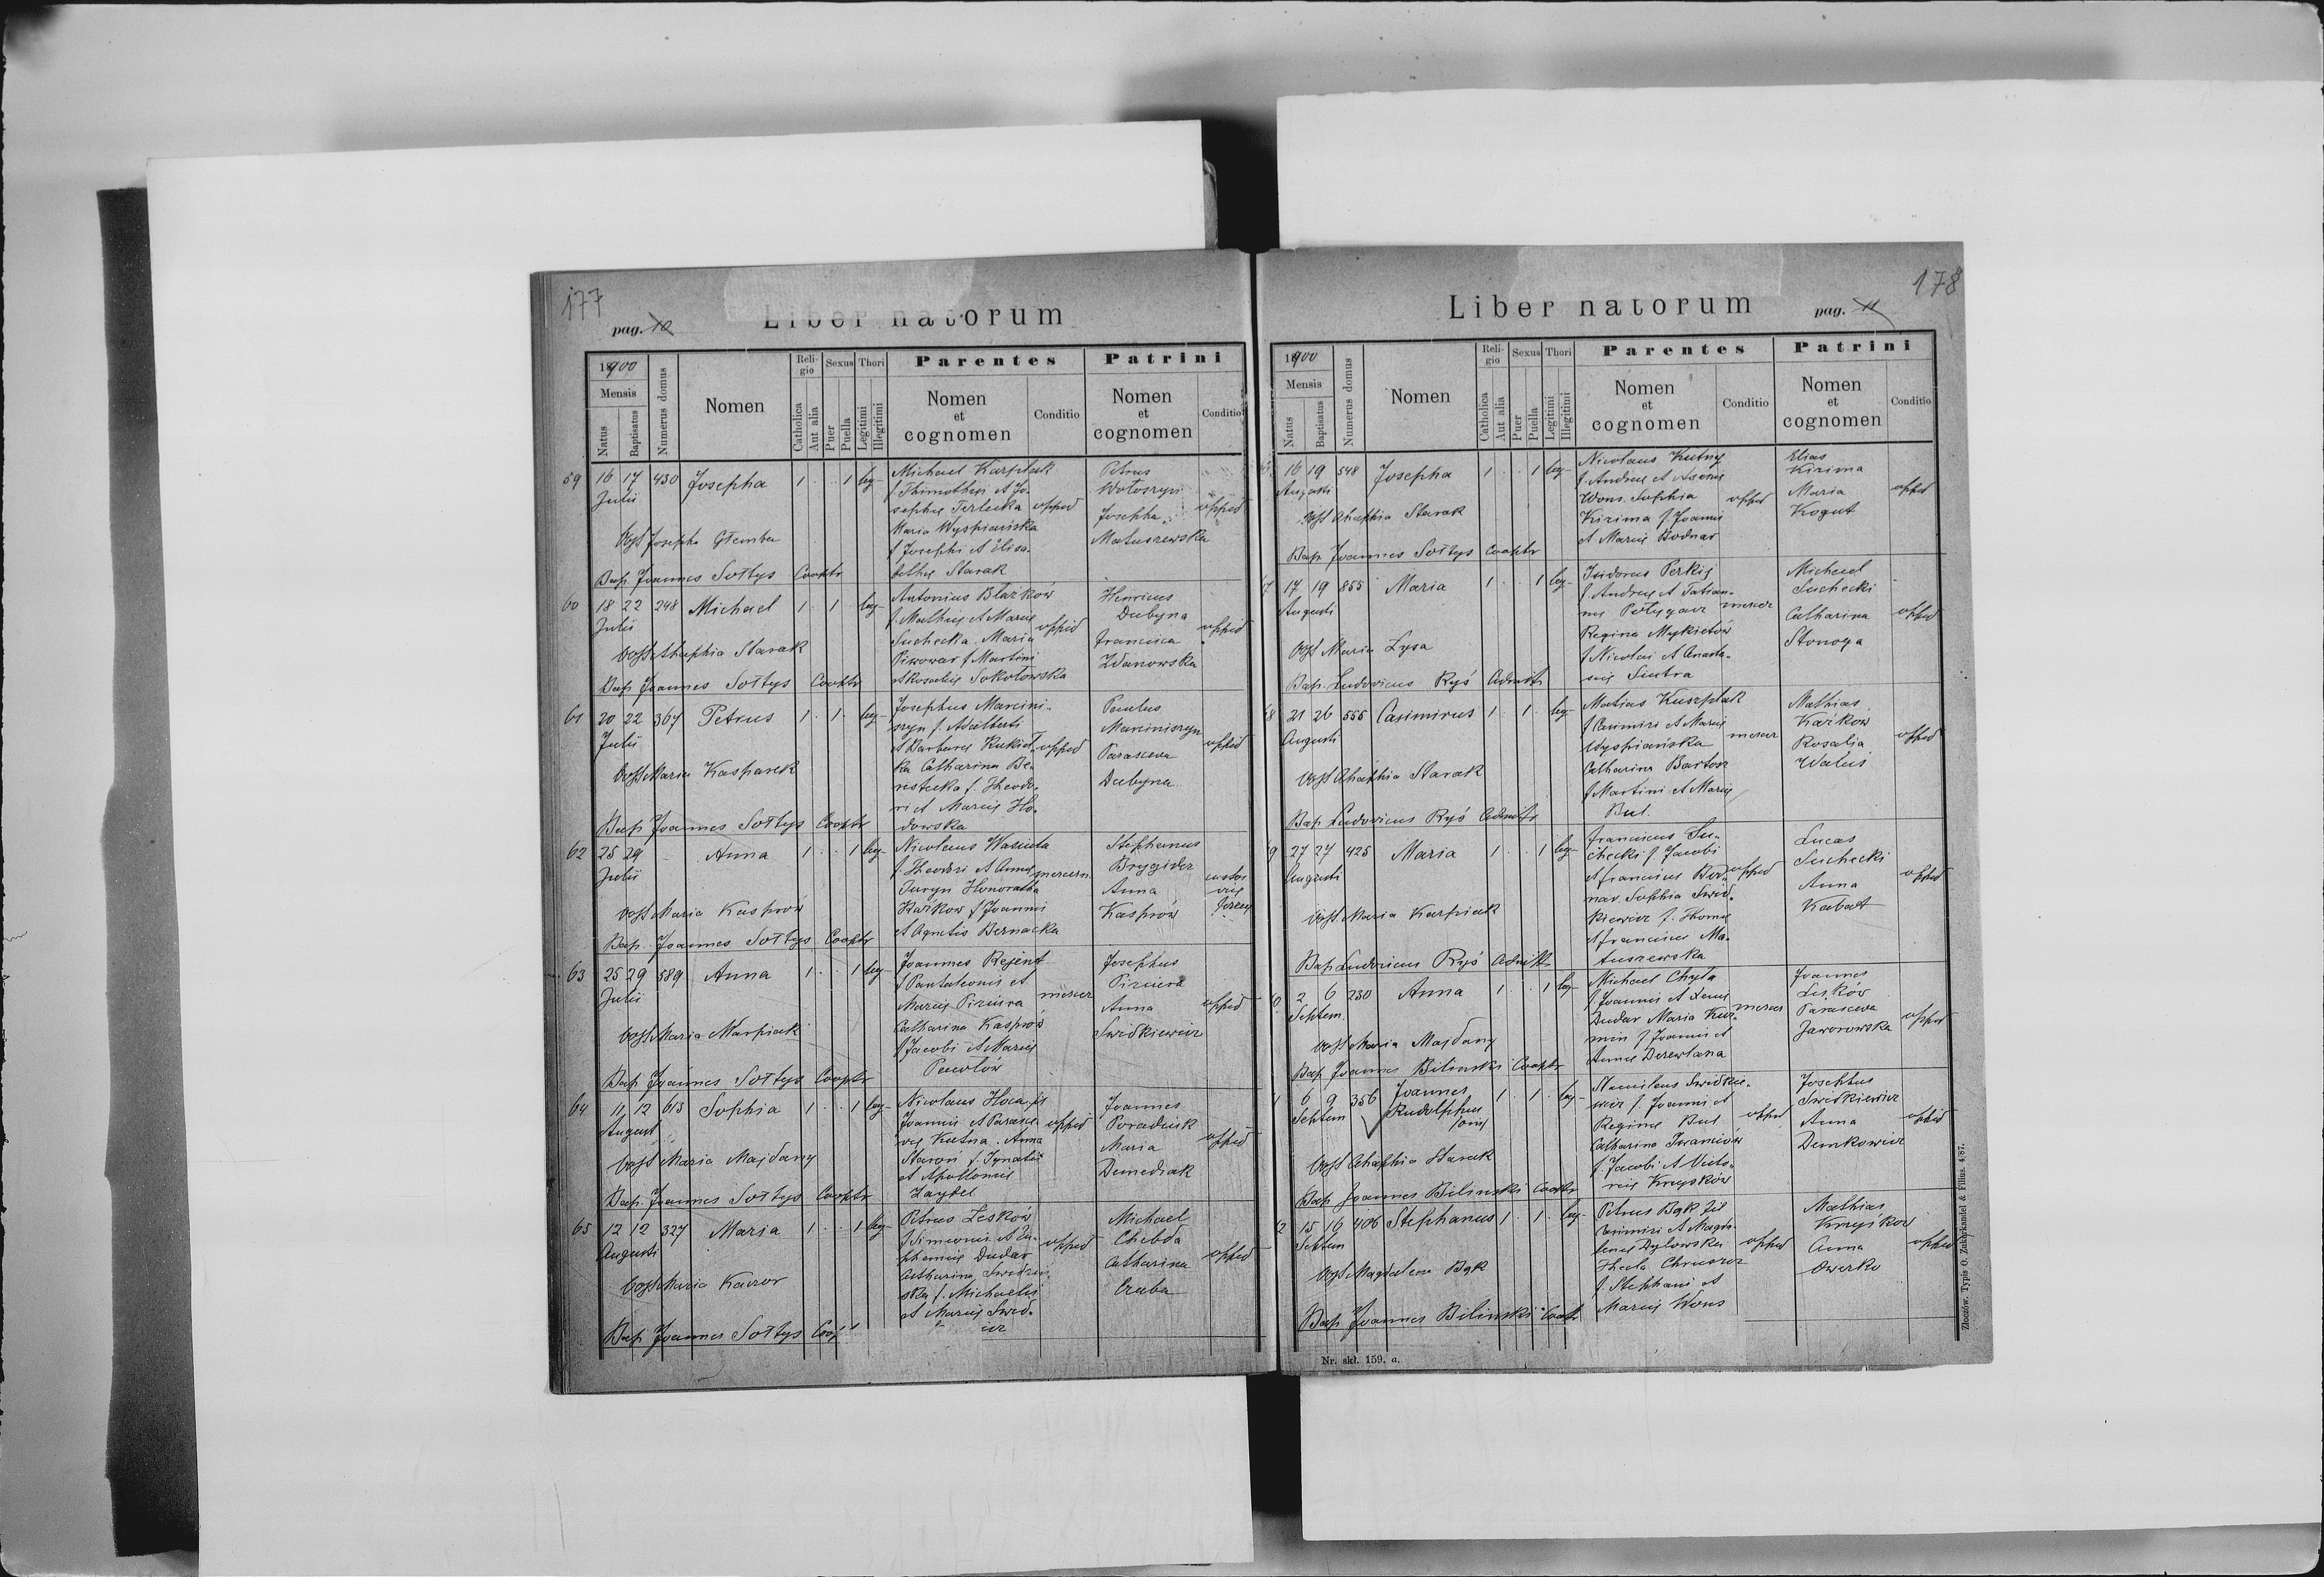 177
pag. 10
Liber natorum
1900
Mensis
Natus
Baptisatus
Numerus domus
Nomen
Religio
Catholica
Aut alia
Sexus
Puer
Puella
Thori
Legitimi
Illegitimi
Parentes
Nomen
et
cognomen
Conditio
Patrini
Nomen
et
cognomen
Conditio
59 16 17 430 Josepha 1 1 leg
Julii
Michael Karplak
f. Thimothei et Jo-
sephae Terlecka opped
Maria Wyspiańska
f Josephi et Elisa-
bethae Starak
Petrus
Wołoszyn
Josepha
Matuszewska
opped
Obst Josepha Głemba
Bap Joannes Sołtys Cooptr
60 18 22 248 Michael 1 1 leg
Julii
Antonius Blażków
f. Mathei et Mariae
Suchecka. Maria oppid
Piwowar f Martini
et Rosaliae Sokołowska
Henricus
Dubyna
Francisca
Zdanowska
opped
Obst Ahaphia Starak
Bap Joannes Sołtys Cooptr
61 20 22 367 Petrus 1 1 leg
Julii
Josephus Marcini-
szyn f. Adalberti
et Barbarae Kukieł- opped
ka Catharina Be-
restecka f. Theodo-
ri et Mariae Ho-
dowska
Paulus
Marciniszyn
Parasceva
Dubyna
opped
Obst Maria Kasparek
Bap Joannes Sołtys Cooptr
62 25 29 - Anna 1 1 leg
Julii
Nicolaus Wasiuta
f. Theodori et Annae
Juryn Honoratha
Kaźkow f Joannis
et Agnetis Bernacka
Stephanus
Brygider
Anna
Kasprów
Obst Maria Kasprów
Bap. Joannes Sołtys Cooptr
63 25 29 589 Anna 1 1 leg
Julii
Joannes Rejent
f Pantaleonis et
Mariae Piziura mercr
Catharina Kasprów
f Jacobi et Mariae
Pawłów
Josephus
Piziura
Anna
Swidkiewicz
opped
Obst Maria Karpiak
Bap Joannes Sołtys Cooptr
64 11 12 613 Sophia 1 1 leg
August
Nicolaus Hoca fs
Joannis et Parasce-
vae Kutna. Anna opped
Staroń f. Ignatii
et Apolloniae
Zaydel
Joannes
Poradiuk
Maria
Demediak
opped
Obst Maria Majdany
Bap. Joannes Sołtys Cooptr
65 12 12 327 Maria 1 1 leg
Augusti
Petrus Lesków
f Simeonis et Eu-
phemiae Dudar opped
Catharina Swidzin-
ska f. Michaelis
et Mariae Swid-
icz
Michael
Chebda
Catharina
Czuba
opped
Obst Maria Kaczor
Bap Joannes Sołtys Coop
178
Liber natorum
pag. 11
1900
Mensis
Natus
Baptisatus
Numerus domus
Nomen
Religio
Catholica
Aut alia
Sexus
Puer
Puella
Thori
Legitimi
Illegitimi
Parentes
Nomen
et
cognomen
Conditio
Patrini
Nomen
et
cognomen
Conditio
16 19 548 Josepha 1 1 leg
Augusti
Nicolaus Kutny
f. Andreae et Xeniae
Wons. Sophia opped
Kirima f. Joannis
et Mariae Bodnar
Elias
Kirima
Maria
Kogut
opped
Obst Ahaphia Starak
Bap Joannes Sołtys Cooptr
7 17 19 855 Maria 1 1 leg
Augusti
Isidorus Perkij
f. Andreae et Tatian-
nae Połygacz mercr
Regina Mykietów
f Nicolai et Anasta-
siae Siutra
Michael
Suchecki
Catharina
Stonoga
opped
Obst Maria Lysa
Bap. Ludovicus Ryś Admstr
8 21 26 555 Casimirus 1 1 leg
Augusti
Matias Kuszplak
f Casimiri et Mariae
Wyspiańska mercr
Catharina Bartos
f Martini et Mariae
Bul.
Mathias
Kaźkow
Rosalia
Walus
opped
Obst Ahaphia Starak
Bap Ludovicus Ryś Admstr
9 27 27 425 Maria 1 1 leg
Augusti
Franciscus Su-
checki f. Jacobi
et Franciscae Bod- opped
nar. Sophia Swid-
kiewicz f. Thomae
et Franciscae Ma-
tuszewska
Lucas
Suchecki
Anna
Kabat
opped
Obst. Maria Karpiak
Bap Ludovicus Ryś Admstr
0 2 6 230 Anna 1 1 leg
Septem.
Michael Chyta
f. Joannis et Xeniae
Dudar Maria Kuz- mercr
min f Joannis et
Annae Derewlana
Joannes
Lesków
Parasceva
Jaworowska
opped
Obst Maria Majdany
Bap Joannes Bilinski Cooptr
1 6 9 356 Joannes 1 1 leg
Septem Rudolphus
Stanislaus Swidkie-
wicz f. Joannis et
Reginae Bul opped
Catharina Iwaniców
f. Jacobi et Victo-
riae Knyśków
Josephus
Swidkiewicz
Anna
Demkowicz
opped
Obst Ahaphia Starak
Bap Joannes Bilinski Cooptr
2 15 16 406 Stephanus 1 1 leg
Septem
Petrus Bąk fil
Casimiri et Magda-
lenae Dylowska opped
Thecla Chruszcz
f. Stephani et
Mariae Wons
Mathias
Knyśkow
Anna
Owerko
opped
Obst Magdalena Bąk
Bap Joannes Bilinski Cooptr
Nr. skł. 159. a.
Złoczów. Typis O. Zukerkandel & Filius. 4/87.